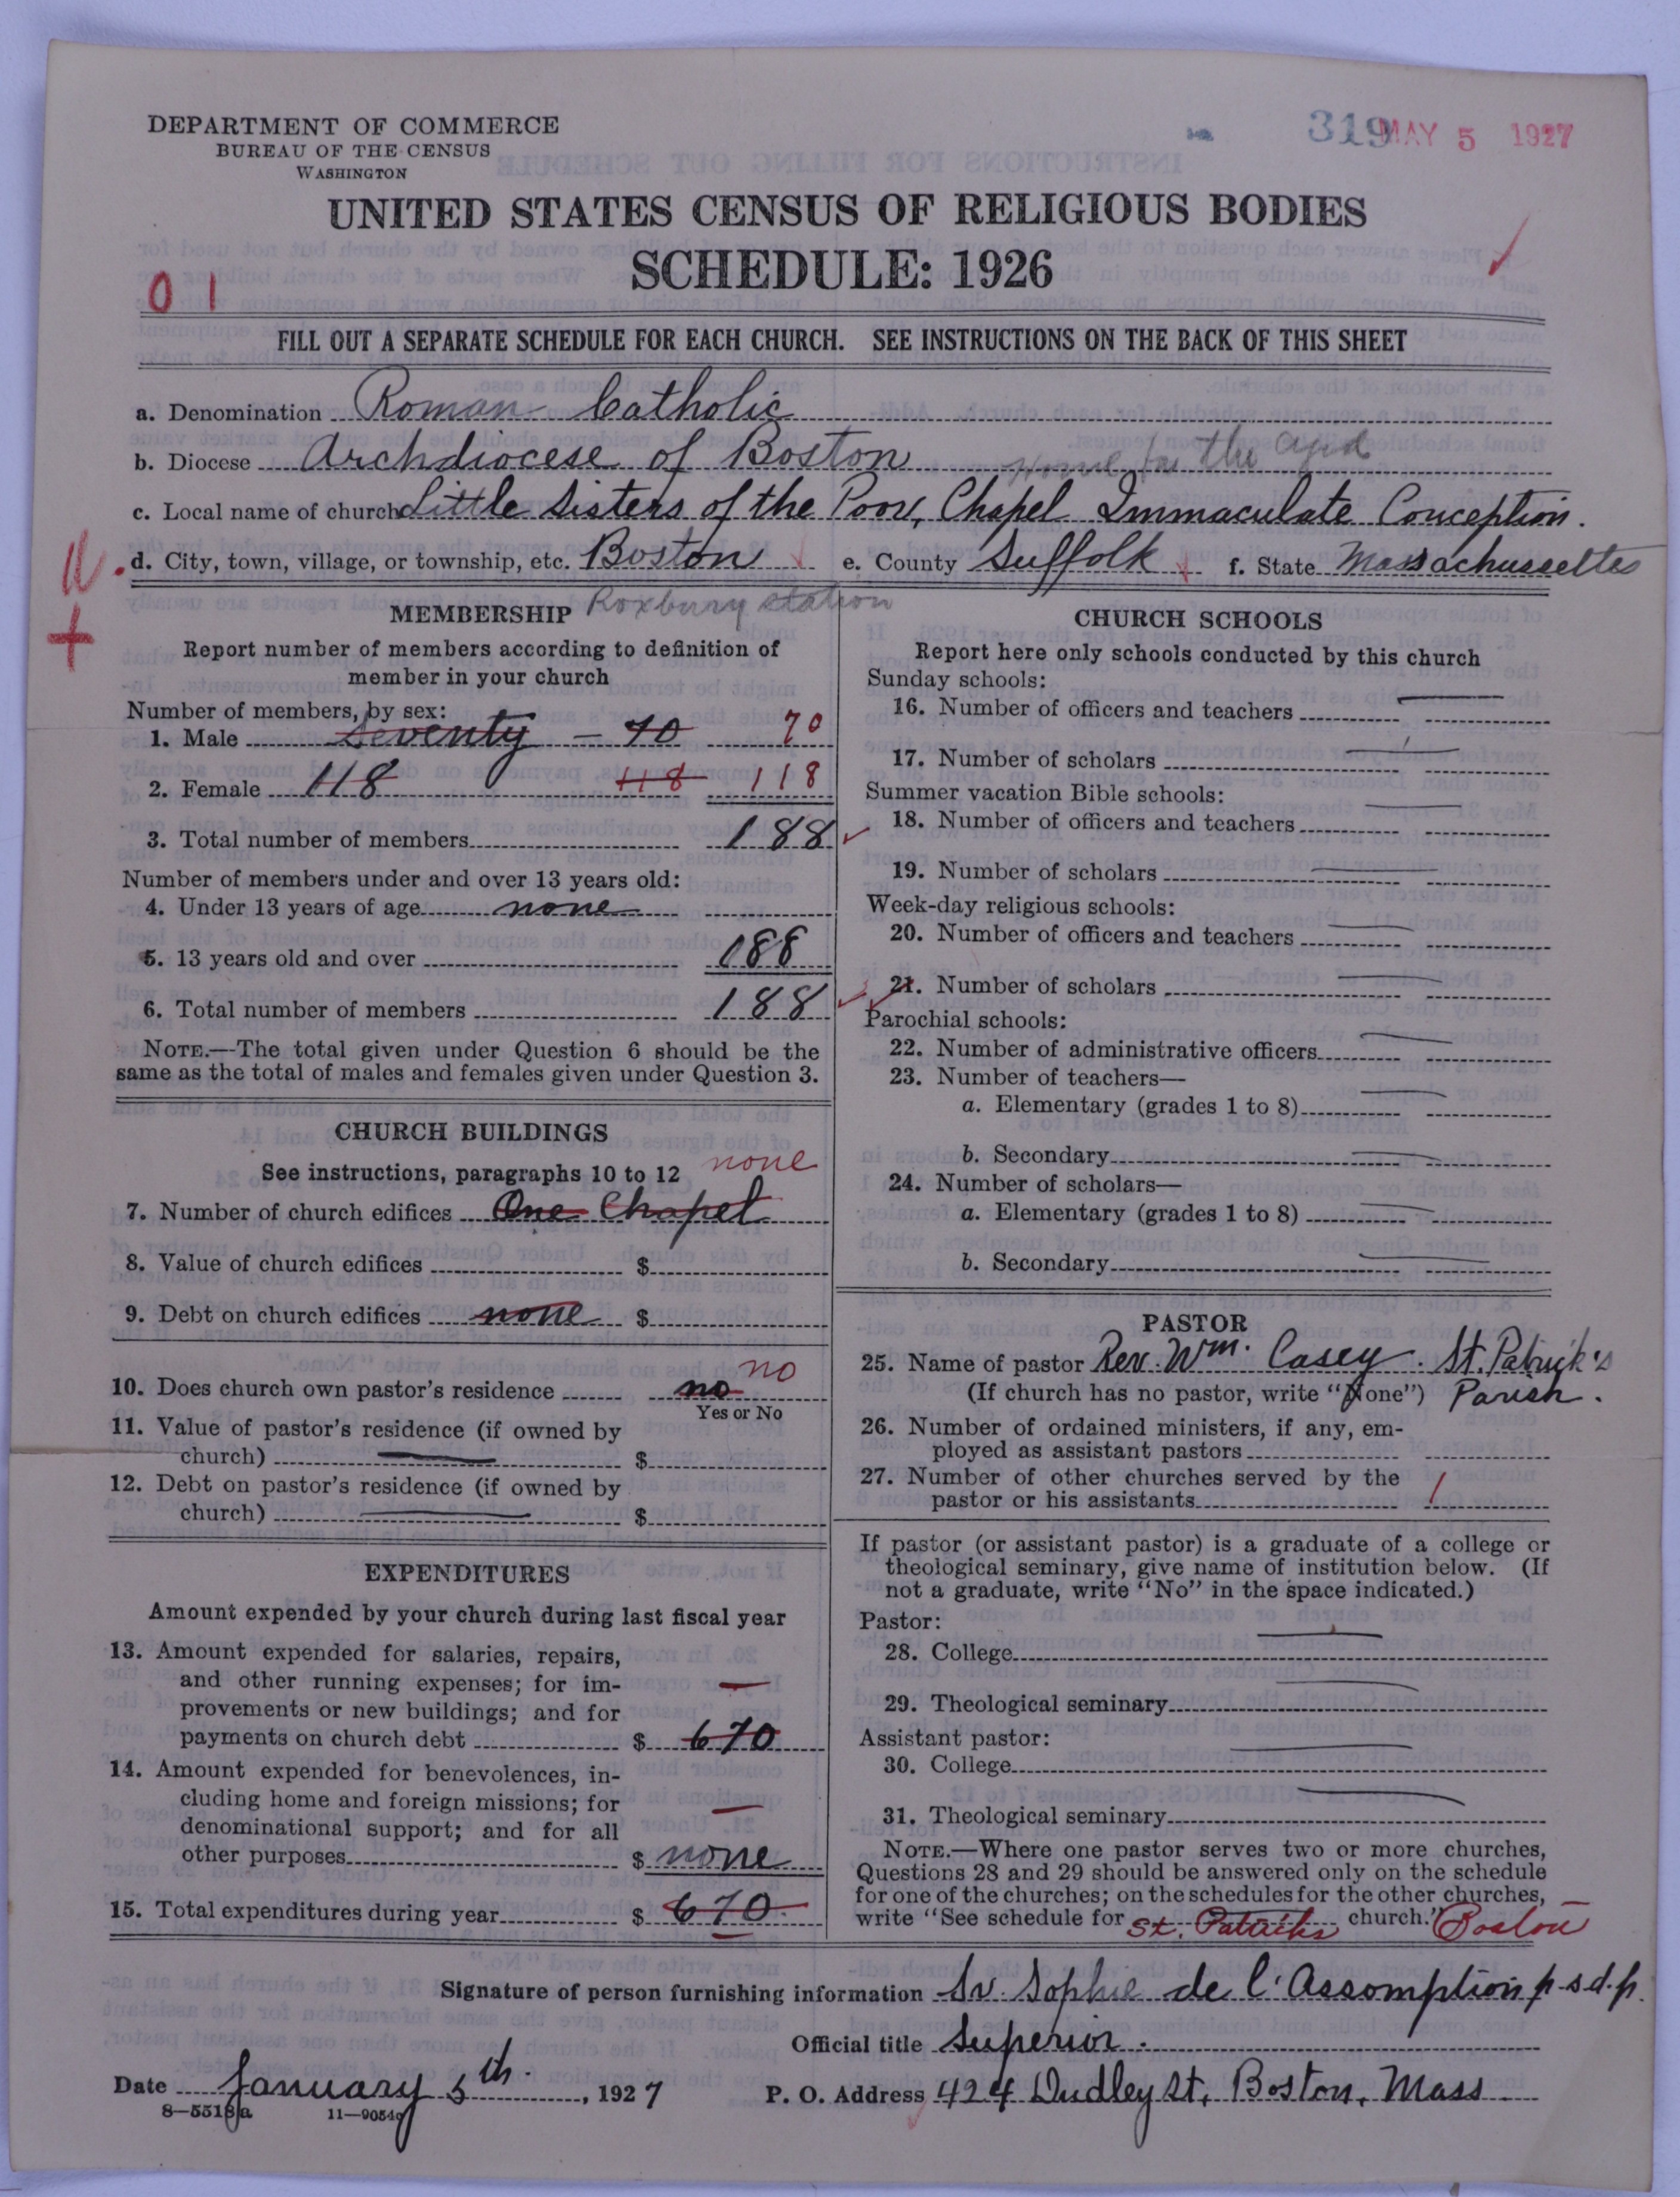 DEPARTMENT OF COMMERCE
BUREAU OF THE CENSUS
WASHINGTON
319 MAY 5 1927
UNITED STATES CENSUS OF RELIGIOUS BODIES
SCHEDULE: 1926
0 1
FILL OUT A SEPARATE SCHEDULE FOR EACH CHURCH. SEE INSTRUCTIONS ON THE BACK OF THIS SHEET
a. Denomination Roman Catholic
b. Diocese Archdiocese of Boston Home for the Aged
c. Local name of church Little Sisters of the Poor, Chapel Immaculate Conception.
d. City, town, village, or township, etc. Boston e. County Suffolk f. State Massachussettes
Roxbury station
MEMBERSHIP
Report number of members according to definition of
member in your church
Number of members, by sex:
1. Male Seventy – 70 70
2. Female 118 118 118
3. Total number of members 188
Number of members under and over 13 years old:
4. Under 13 years of age none
5. 13 years old and over 188
6. Total number of members 188
NOTE.—The total given under Question 6 should be the
same as the total of males and females given under Question 3.
CHURCH BUILDINGS
See instructions, paragraphs 10 to 12 none
7. Number of church edifices One Chapel
8. Value of church edifices $
9. Debt on church edifices none $
no
10. Does church own pastor's residence no
Yes or No
11. Value of pastor's residence (if owned by
church) — $
12. Debt on pastor's residence (if owned by
church) — $
EXPENDITURES
Amount expended by your church during last fiscal year
13. Amount expended for salaries, repairs,
and other running expenses; for im-
provements or new buildings; and for
payments on church debt $ 670
14. Amount expended for benevolences, in-
cluding home and foreign missions; for
denominational support; and for all
other purposes $ none
15. Total expenditures during year $ 670
CHURCH SCHOOLS
Report here only schools conducted by this church
Sunday schools:
16. Number of officers and teachers —
17. Number of scholars —
Summer vacation Bible schools:
18. Number of officers and teachers —
19. Number of scholars —
Week-day religious schools:
20. Number of officers and teachers —
21. Number of scholars —
Parochial schools:
22. Number of administrative officers —
23. Number of teachers—
a. Elementary (grades 1 to 8) —
b. Secondary —
24. Number of scholars—
a. Elementary (grades 1 to 8) —
b. Secondary —
PASTOR
25. Name of pastor Rev. Wm. Casey. St. Patrick's
(If church has no pastor, write "None") Parish.
26. Number of ordained ministers, if any, em-
ployed as assistant pastors
27. Number of other churches served by the
pastor or his assistants 1
If pastor (or assistant pastor) is a graduate of a college or
theological seminary, give name of institution below. (If
not a graduate, write "No" in the space indicated.)
Pastor:
28. College —
29. Theological seminary —
Assistant pastor:
30. College —
31. Theological seminary —
NOTE.—Where one pastor serves two or more churches,
Questions 28 and 29 should be answered only on the schedule
for one of the churches; on the schedules for the other churches,
write "See schedule for St. Patricks church." Boston
Signature of person furnishing information Sr. Sophie de l'Assomption p.s.d.p.
Official title Superior.
Date January 5th, 1927 P. O. Address 424 Dudley St, Boston, Mass
8—5518a 11—9054c